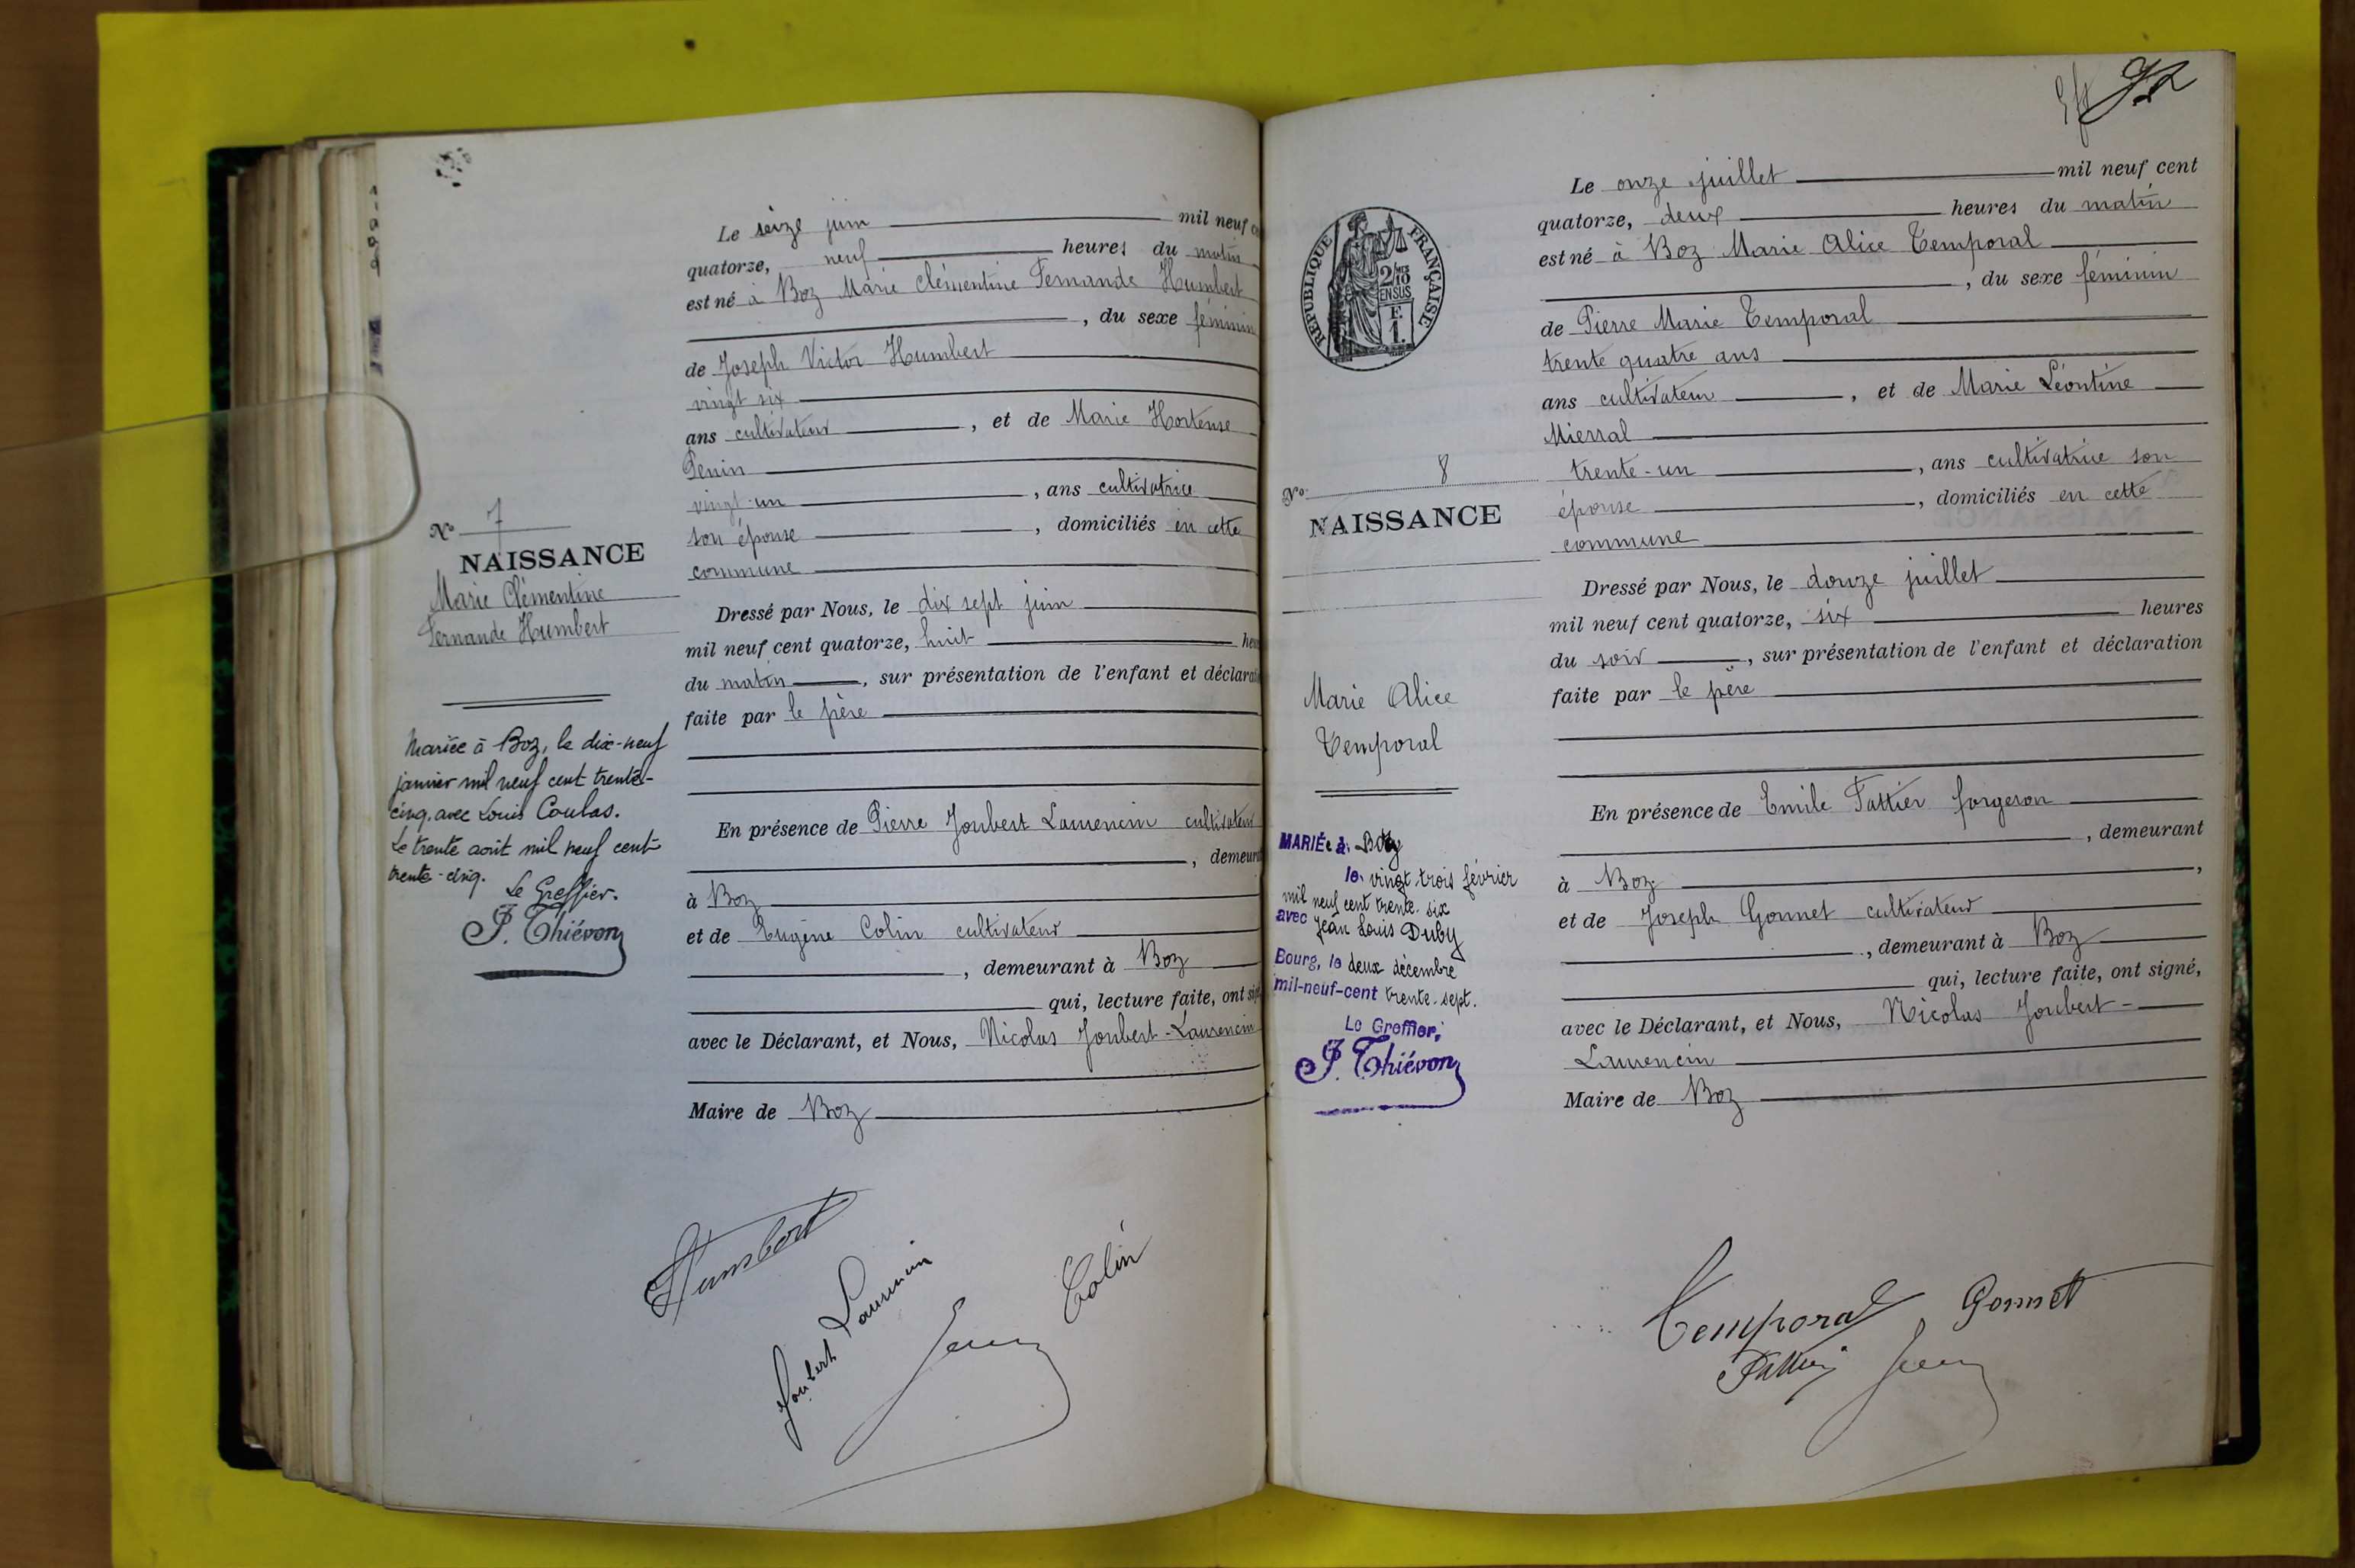 Nº 7
NAISSANCE
Marie Clémentine
Fernande Humbert
Mariée à Boz, le dix-neuf
janvier mil neuf cent trente-
cinq, avec Louis Coulas.
Le trente août mil neuf cent
trente-cinq.
Le Greffier.
J. Thiévon
Le seize juin mil neuf
quatorze, neuf heures du matin
est né à Boz Marie Clémentine Fernande Humbert
, du sexe féminin
de Joseph Victor Humbert
vingt six
ans cultivateur , et de Marie Hortense
Penin
vingt-un , ans cultivatrice
son épouse , domiciliés en cette
commune
Dressé par Nous, le dix sept juin
mil neuf cent quatorze, huit
du matin , sur présentation de l'enfant et
faite par le père
En présence de Pierre Joubert Laurencin cultivateur
, 
à Boz
et de Eugène Colin cultivateur
, demeurant à Boz
qui, lecture faite, ont
avec le Déclarant, et Nous, Nicolas Joubert-Laurencin
Maire de Boz
Humbert
Joubert Laurencin
Colin
RÉPUBLIQUE FRANÇAISE
2/10
EN SUS
F.
1.
Nº 8
NAISSANCE
Marie Alice
Temporal
MARIÉe à Boz
le vingt trois février
mil neuf cent trente-six
avec Jean Louis Duby
Bourg, le deux décembre
mil-neuf-cent trente-sept.
Le Greffier,
J. Thiévon
Le onze juillet mil neuf cent
quatorze, deux heures du matin
est né à Boz Marie Alice Temporal
, du sexe féminin
de Pierre Marie Temporal
trente quatre ans
ans cultivateur , et de Marie Léontine
Mierral
trente-un , ans cultivatrice son
épouse , domiciliés en cette
commune
Dressé par Nous, le douze juillet
mil neuf cent quatorze, six heures
du soir , sur présentation de l'enfant et déclaration
faite par le père
En présence de Emile Fattier forgeron
, demeurant
à Boz ,
et de Joseph Gonnet cultivateur
, demeurant à Boz
qui, lecture faite, ont signé,
avec le Déclarant, et Nous, Nicolas Joubert-
Laurencin
Maire de Boz
Temporal Gonnet
Fattier